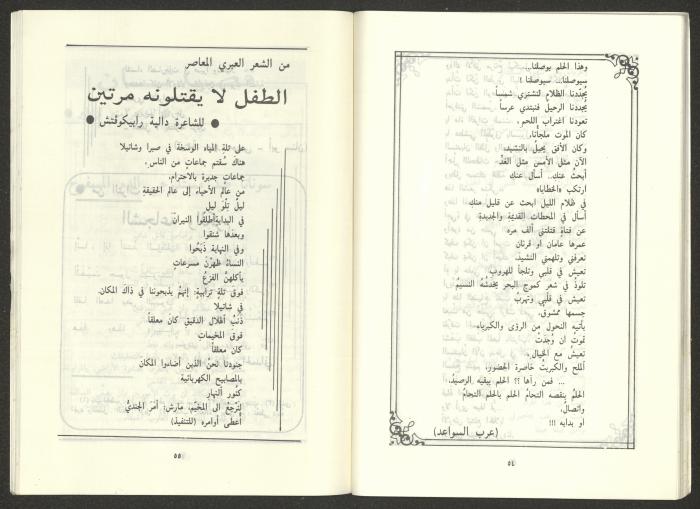 وهذا الحلم يوصلنا...
سيوصلنا... سيوصلنا !
يُجدّدنا الظلام لنشتري شمساً
يُجددنا الرحيلُ فنبتدي عرساً
تعودنا اغتراب اللحم،
كان الموت ملجأنا،
وكان الأفق يحبلُ بالنشيد،
الآن مثل الأمس مثل الغدّ
أبحثُ عنك.. أسأل عنكِ
ارتكب «الخطايا»
في ظلام الليل ابحث عن قليل منكِ
أسأل في المحطات القديمة والجديدة
عن فتاة قتلتني ألف مره
عمرها عامان او قرنان
تعرفني وتلهمني النشيد،
تعيشُ في قلبي وتلجأ للهروب
تلوذُ في شعر كموج البحر يخدشُه النسيمُ
تعيش في قلبي وتهربُ
جسمها ممشوق،
يأتيه النحول من الرؤى والكبرياء
تموت ان وُجدتْ
تعيشُ مع الخيال،
الملح والكبريتُ خاصرة الحضور،
... فمن رآها ؟؟ الحلم يبقيه الرصيدُ،
الحلمُ ينقصه التحامُ الحلم بالحلم التحامُ
واتصالٌ،
او بدايه !!!
(عرب السواعد)
٥٤
من الشعر العبري المعاصر
الطفل لا يقتلونه مرتين
● للشاعرة دالية رابيكوڤتش ●
على تلة المياه الوسخة في صبرا وشاتيلا
هناك سُقتم جماعاتٍ من الناس،
جماعاتٍ جديرة بالاحترام،
من عالم الأحياء إلى عالم الحقيقة
ليلٌ تِلْوَ ليل
في البداية أطلقوا النيران
وبعدها شنقوا
وفي النهاية ذبَحُوا
النساءُ ظهرْنَ مسرعاتٍ
يأكلهنّ الفزعُ
فوق تلة ترابية، إنهمْ يذبحوننا في ذاك المكان،
في شاتيلا
ذَنَبُ الهلال الدقيق كان معلقاً
فوق المخيمات
كان معلقاً
جنودنا نحنُ الذين أضاءوا المكان
بالمصابيح الكهربائية
كنُور النهار
لنرجعْ الى المخيّم، مارش: أمرَ الجنديُّ
أعطى أوامره (للتنفيذ)
٥٥